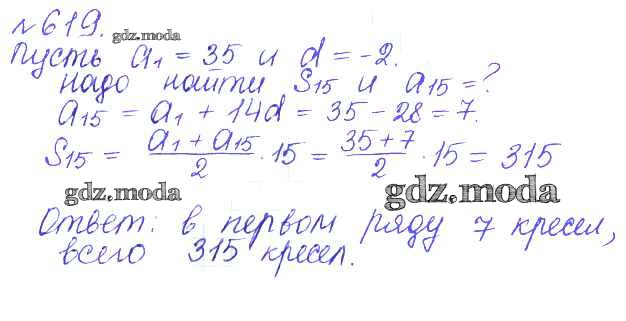 №619.
gdz.moda
Пусть a₁ = 35 и d = -2.
надо найти S₁₅ и a₁₅ = ?
a₁₅ = a₁ + 14d = 35 - 28 = 7.
S₁₅ = (a₁ + a₁₅)/2 · 15 = (35+7)/2 · 15 = 315
gdz.moda gdz.moda
Ответ: в первом ряду 7 кресел,
всего 315 кресел.